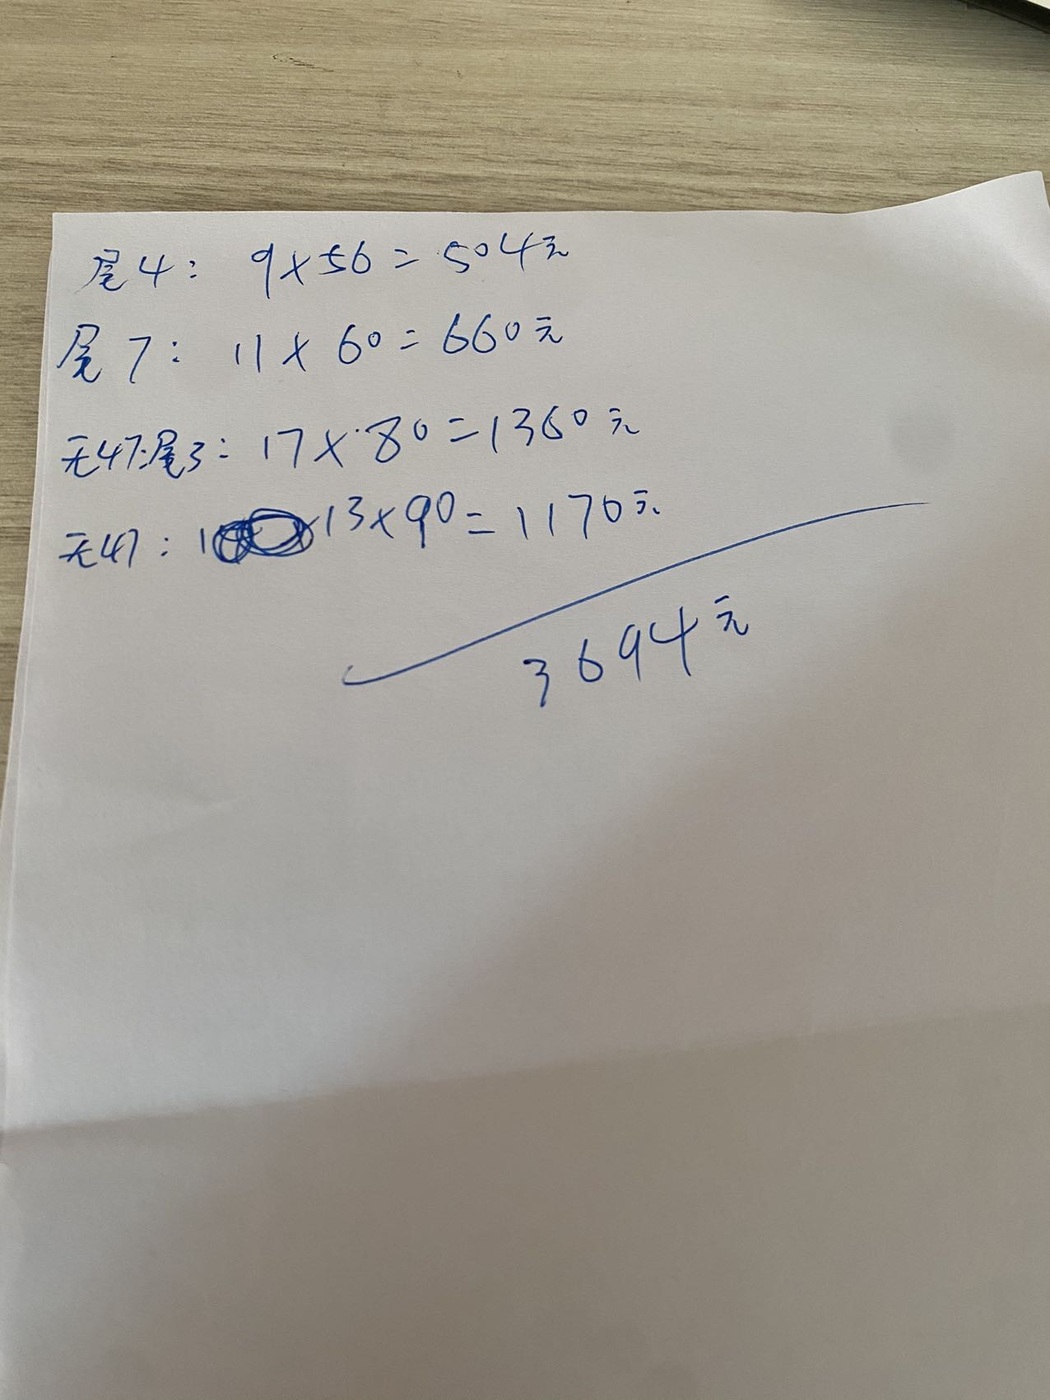 尾4: 9×56=504元
尾7: 11×60=660元
无47.尾3: 17×80=1360元
无47: 13×90=1170元
3694元